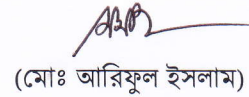 (মোঃ আরিফুল ইসলাম)